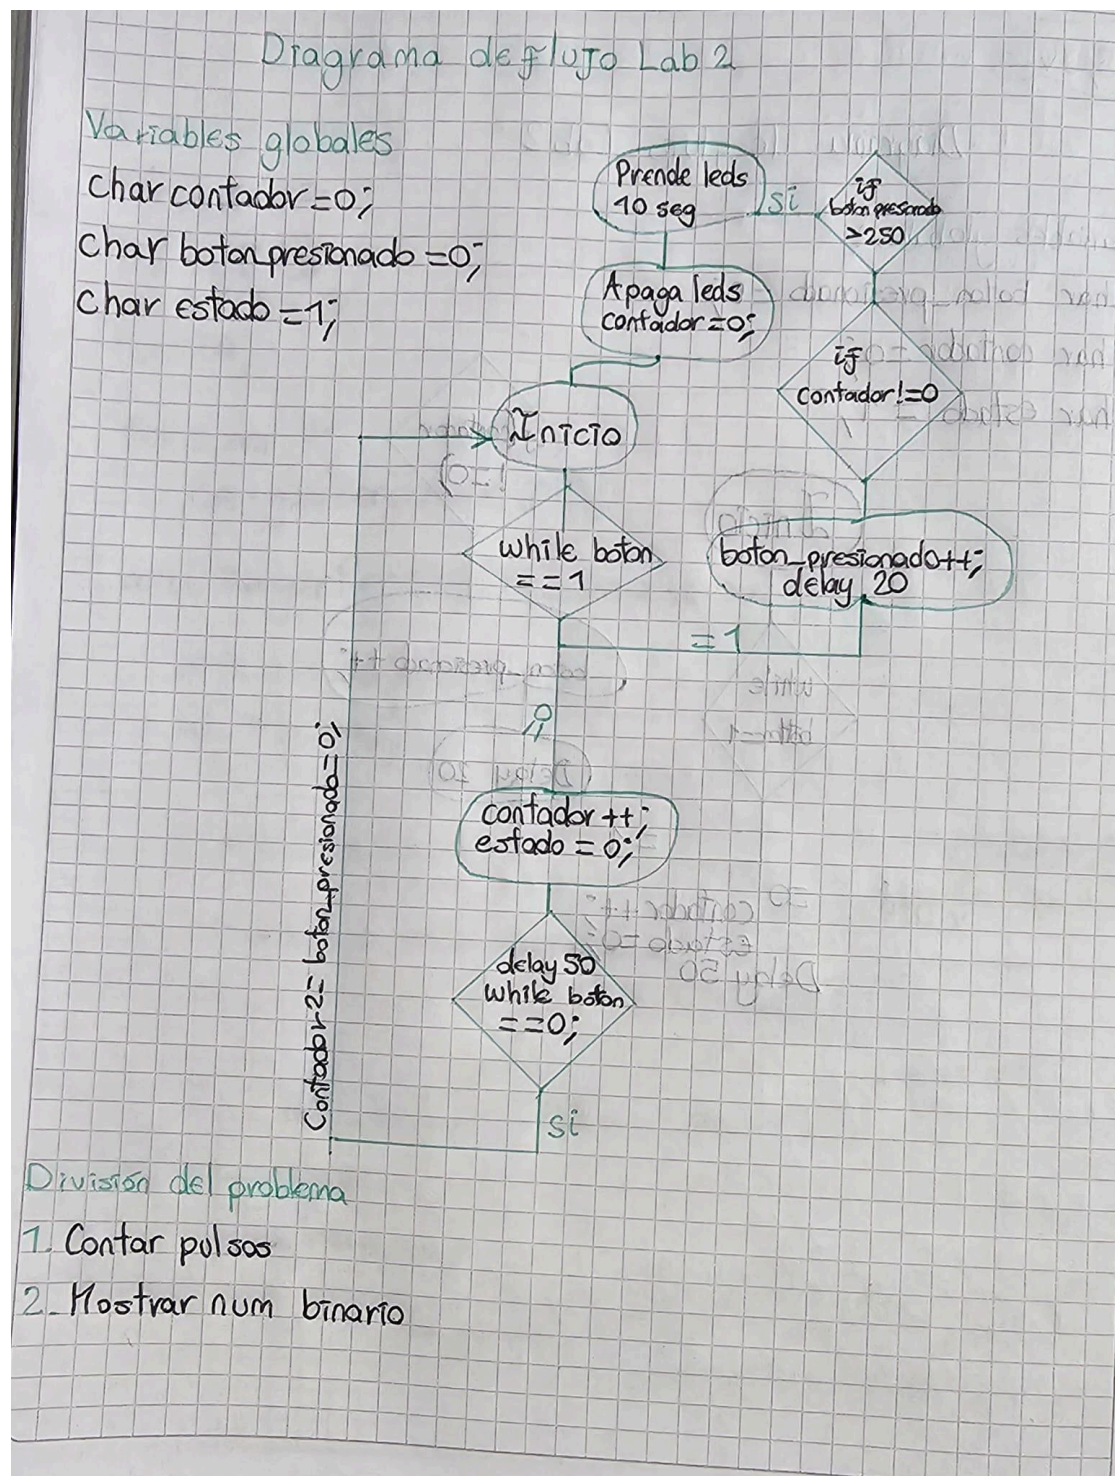 Diagrama de flujo Lab 2
Variables globales
char contador=0;
char boton_presionado=0;
char estado=1;
Prende leds
10 seg
si
if
boton presionado
>250
Apaga leds
contador=0;
if
contador!=0
Inicio
while boton
==1
boton_presionado++;
delay 20
=1
contador++;
estado=0;
delay 50
while boton
==0;
si
Contador2=boton_presionado=0;
División del problema
1. Contar pulsos
2. Mostrar num binario